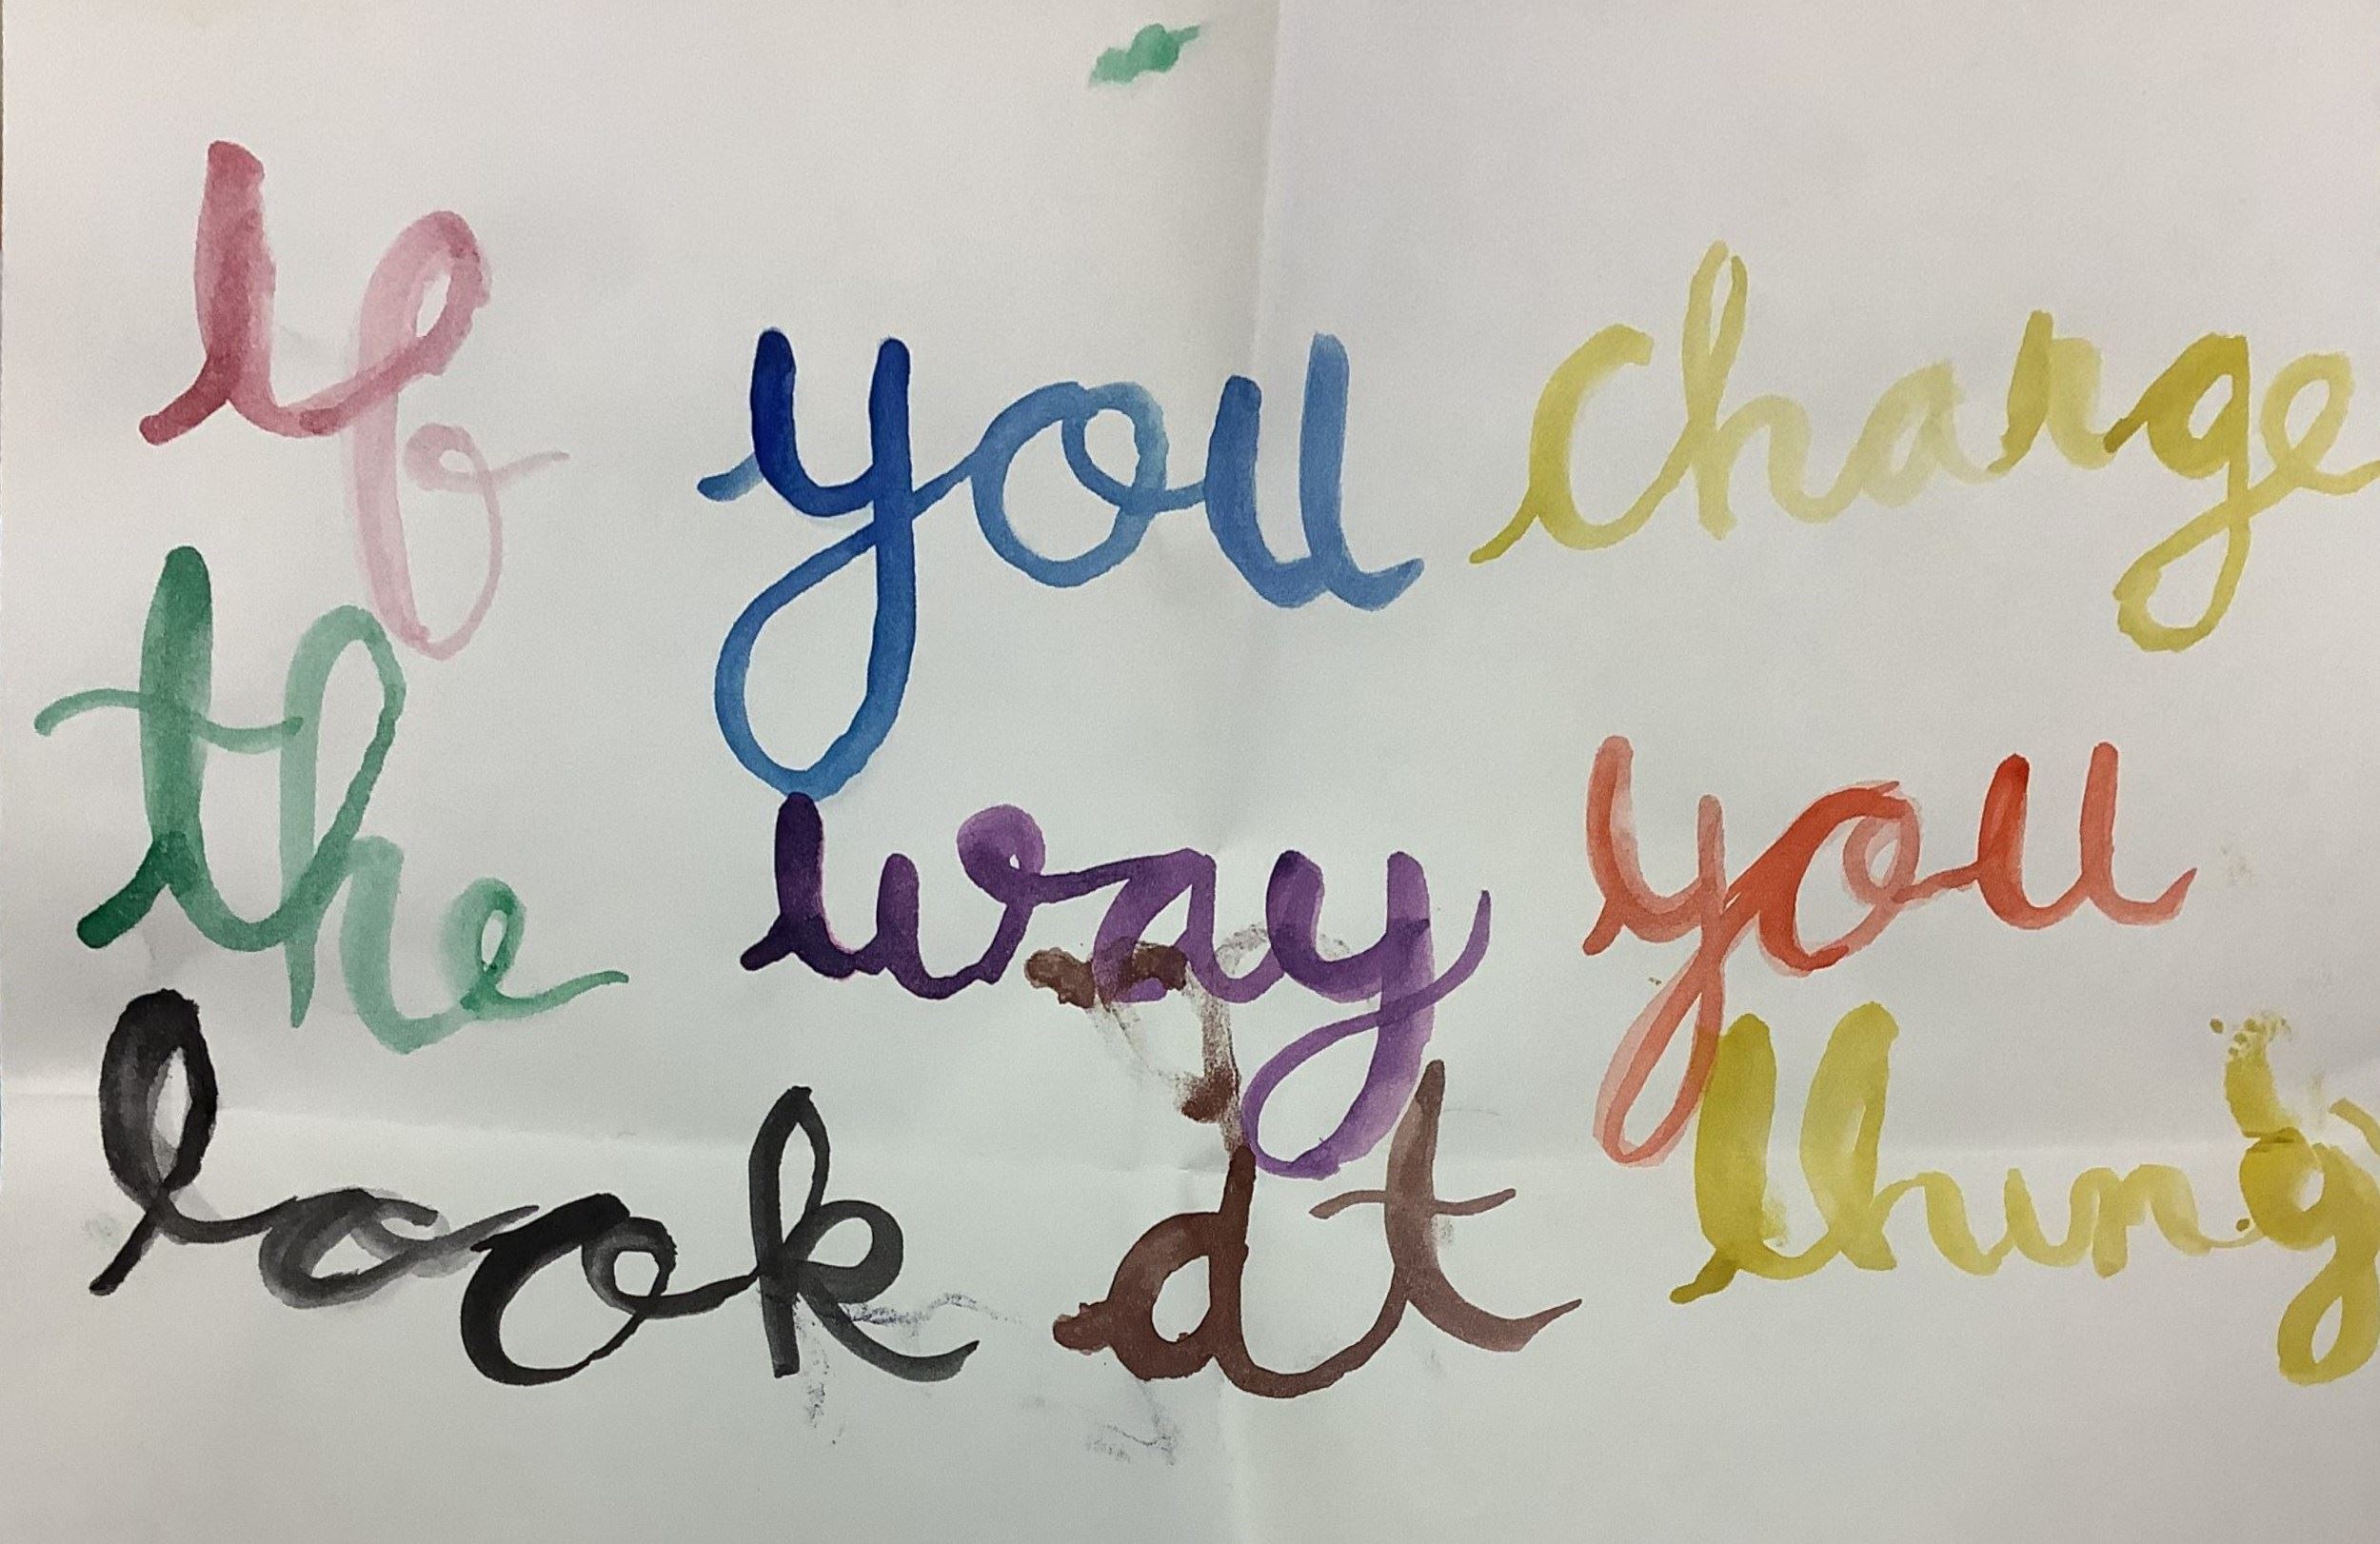 If you change
the way you
look at thing